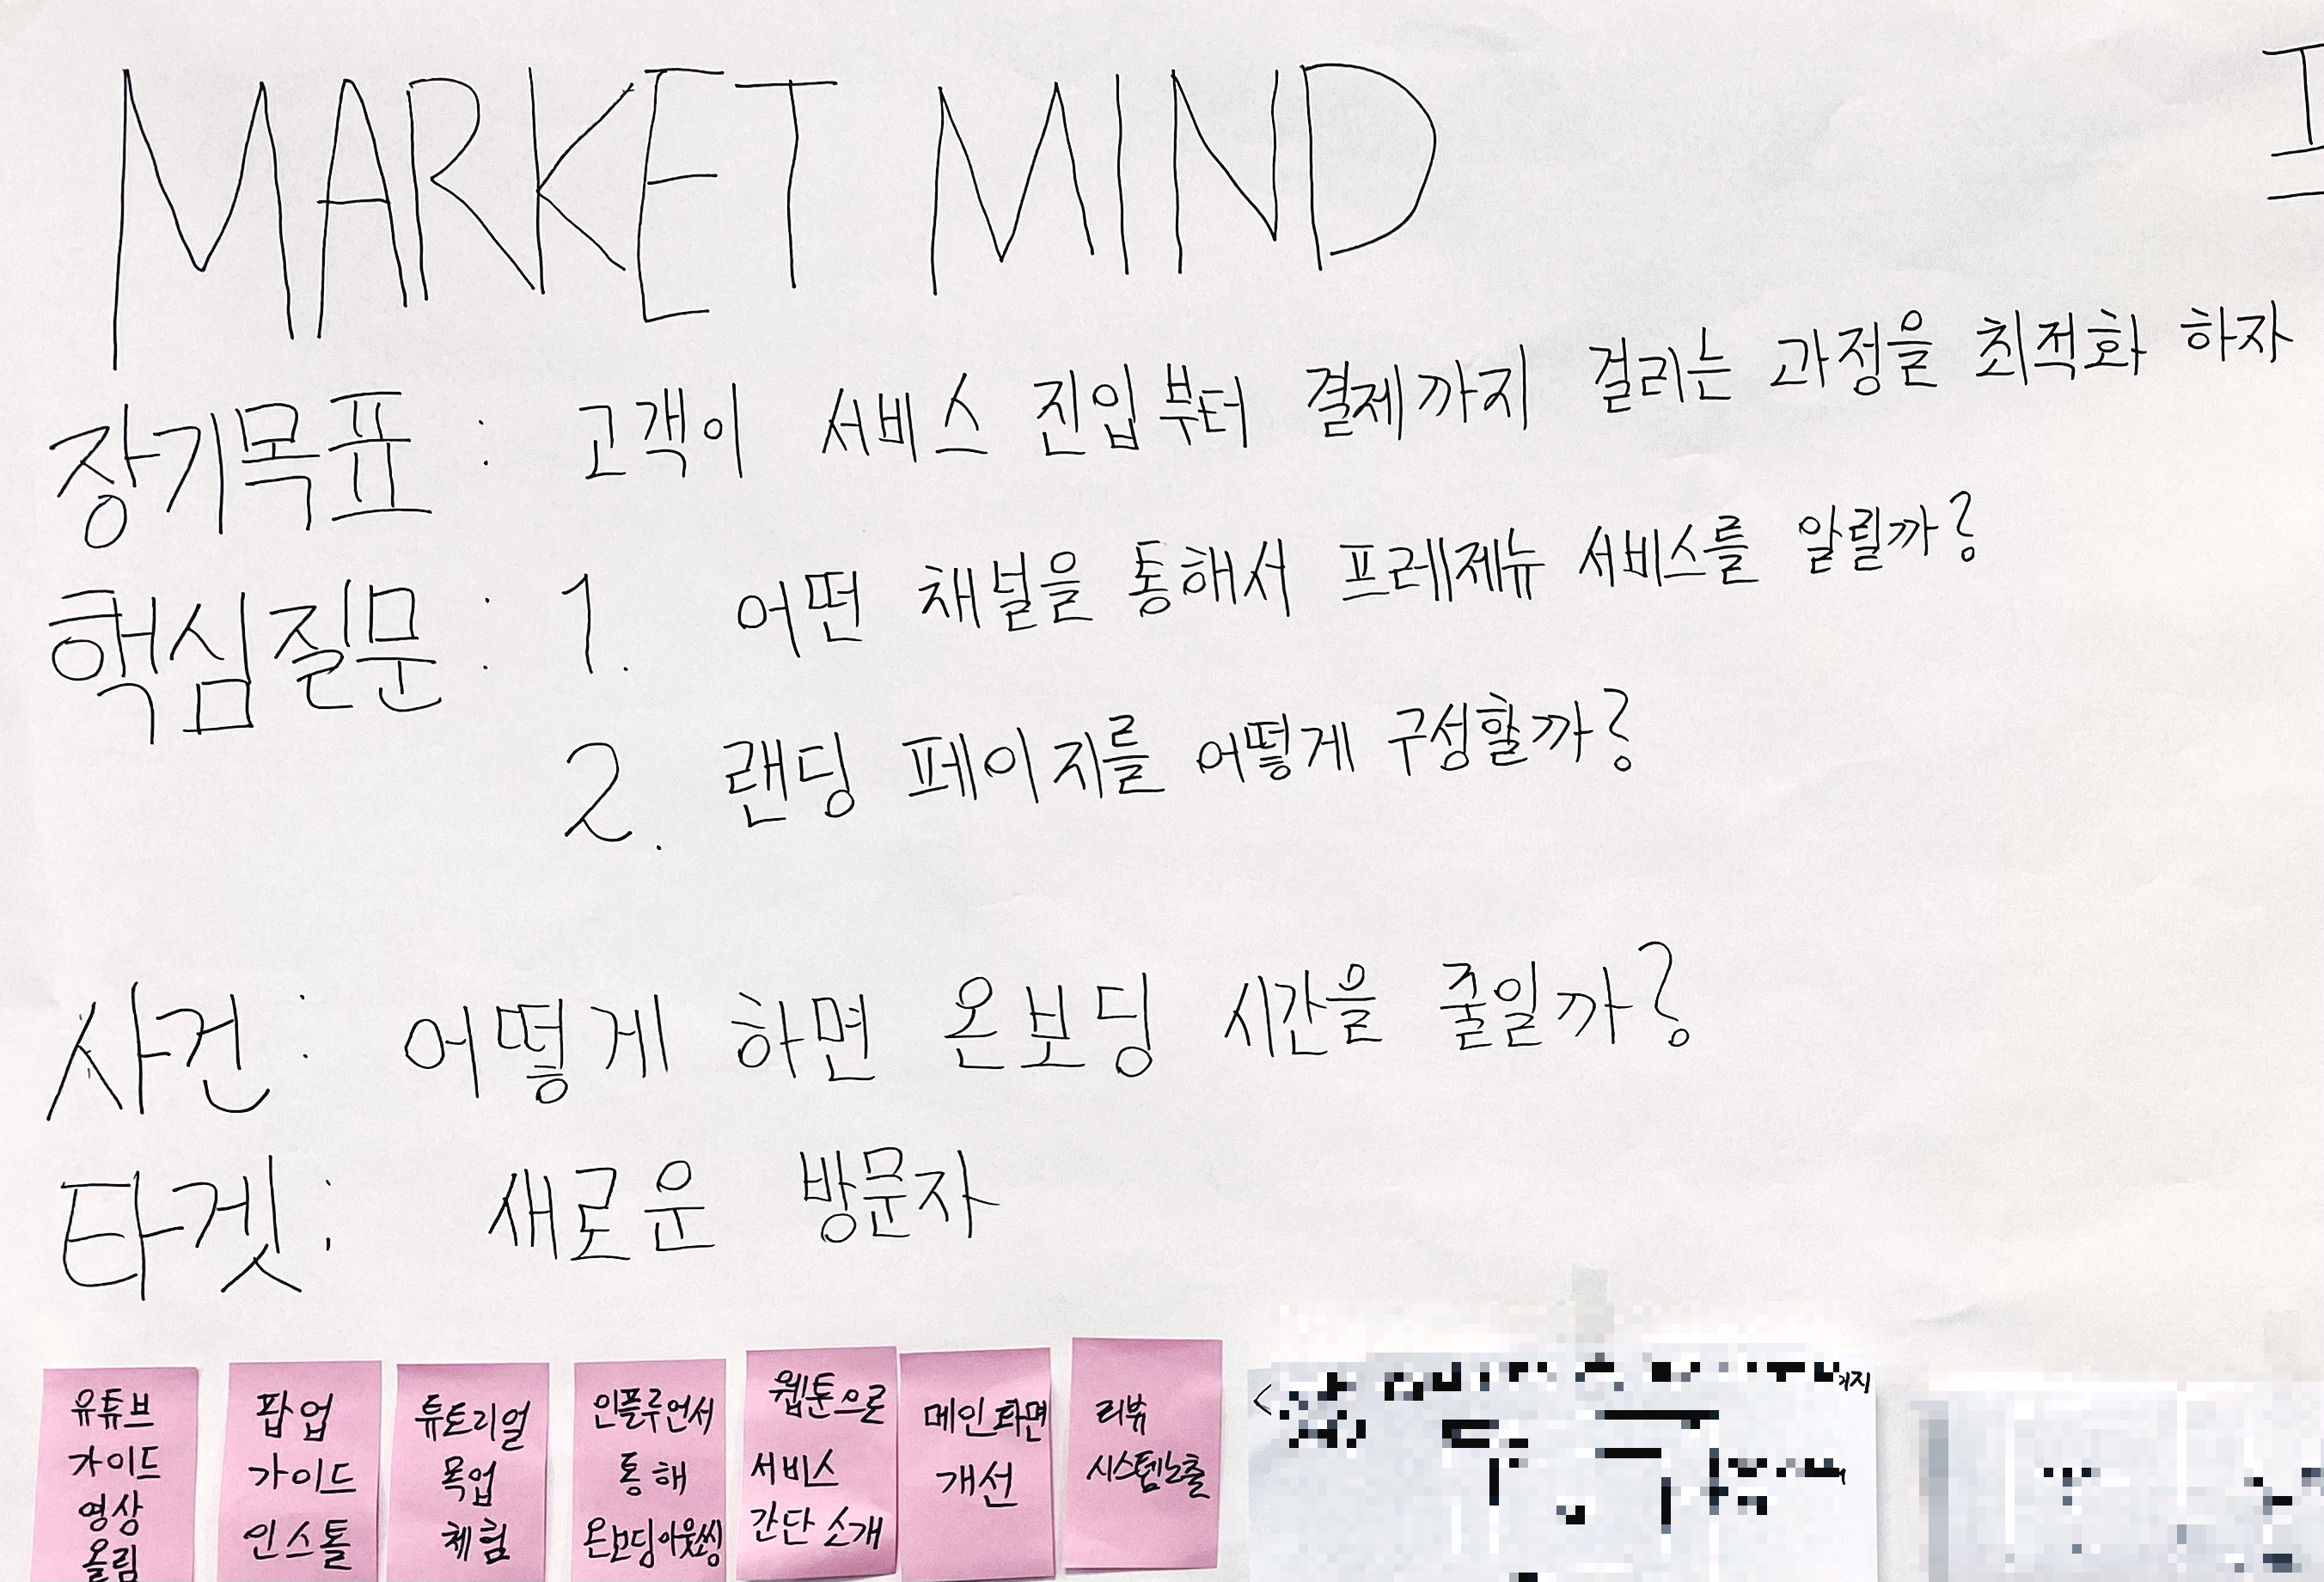 MARKET MIND
장기목표 : 고객이 서비스 진입부터 결제까지 걸리는 과정을 최적화 하자
핵심질문 : 1. 어떤 채널을 통해서 프레제뉴 서비스를 알릴까?
2. 랜딩 페이지를 어떻게 구성할까?
사건 : 어떻게 하면 온보딩 시간을 줄일까?
타겟 : 새로운 방문자
유튜브
가이드
영상
올림
팝업
가이드
인스톨
튜토리얼
목업
체험
인플루언서
통해
온보딩아웃소싱
웹툰으로
서비스
간단 소개
메인화면
개선
리뷰
시스템노출